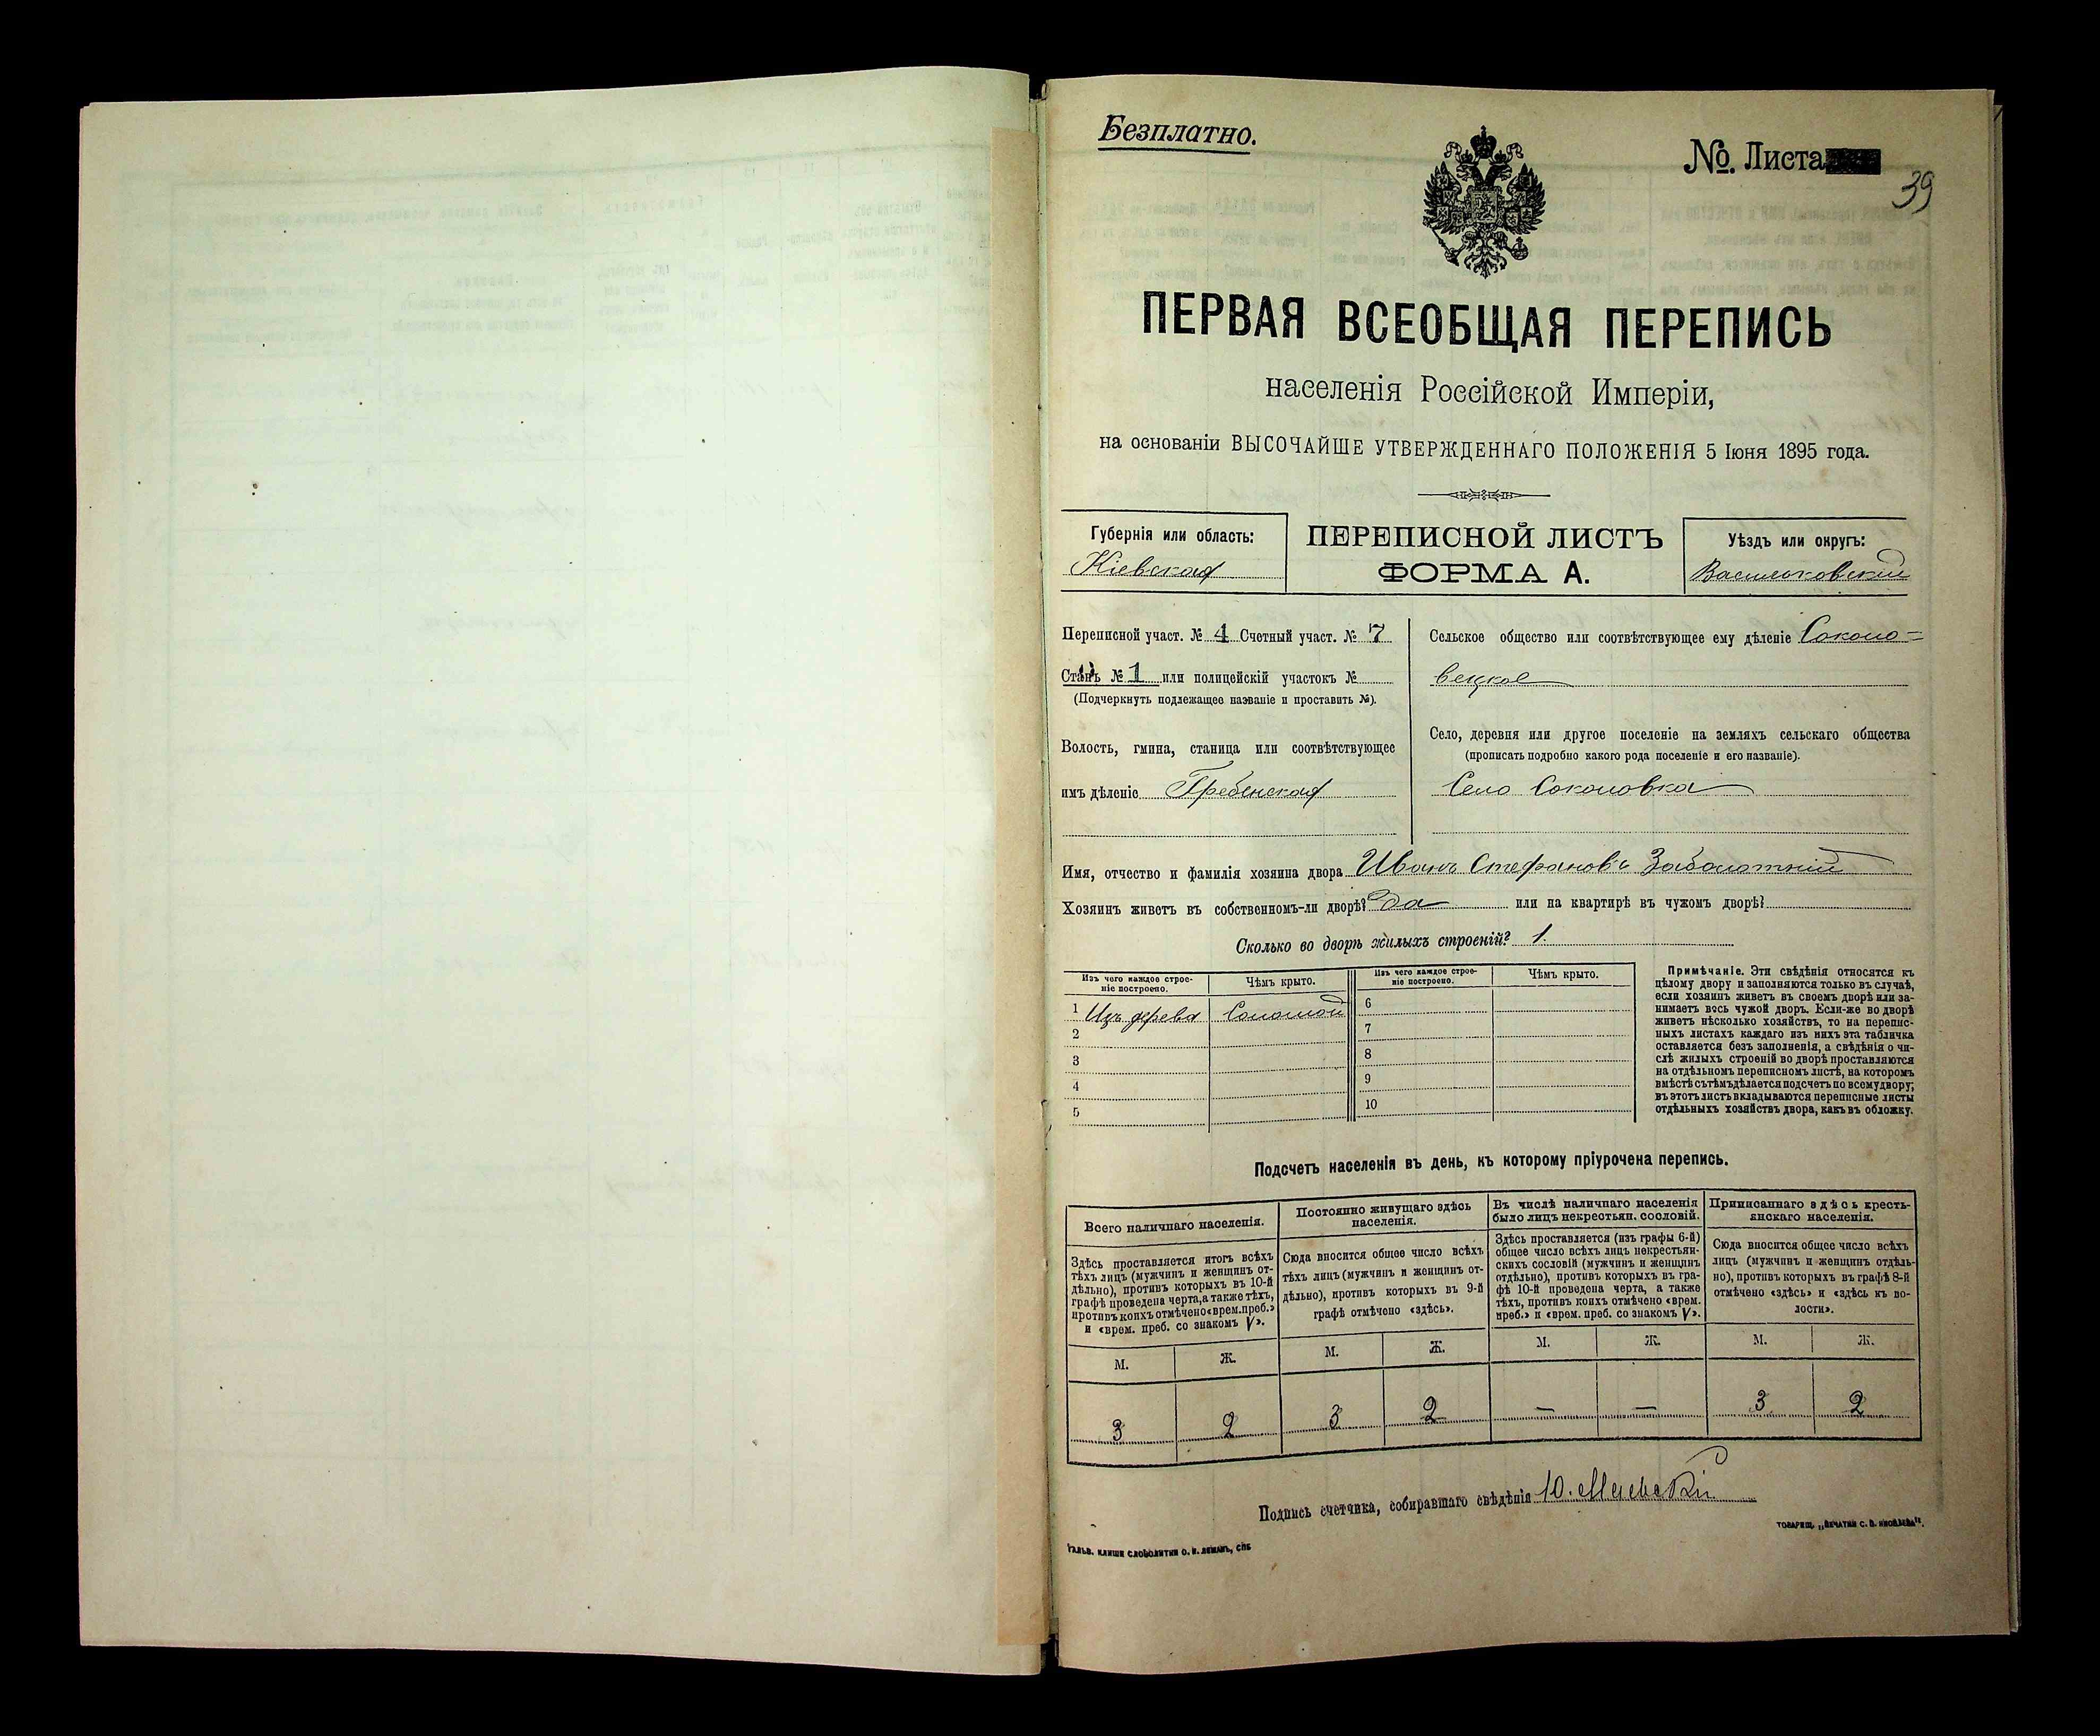 Безплатно.
№ Листа
39
ПЕРВАЯ ВСЕОБЩАЯ ПЕРЕПИСЬ
населенія Россійской Имперіи,
на основаніи ВЫСОЧАЙШЕ УТВЕРЖДЕННАГО ПОЛОЖЕНІЯ 5 Іюня 1895 года.
Губернія или область:
Кіевская
ПЕРЕПИСНОЙ ЛИСТЪ
ФОРМА А.
Уѣздъ или округъ:
Васильковскій
Переписной участ. № 4 Счетный участ. № 7
Станъ № 1 или полицейскій участокъ №
(Подчеркнуть подлежащее названіе и проставить №).
Волость, гмина, станица или соотвѣтствующее
имъ дѣленіе Гребенская
Сельское общество или соотвѣтствующее ему дѣленіе Соколо-
вецкое
Село, деревня или другое поселеніе на земляхъ сельскаго общества
(прописать подробно какого рода поселеніе и его названіе).
Село Соколовка
Имя, отчество и фамилія хозяина двора Иванъ Стефановъ Заболотній
Хозяинъ живетъ въ собственномъ-ли дворѣ? Да или на квартирѣ въ чужомъ дворѣ?
Сколько во дворѣ жилыхъ строеній? 1.
Изъ чего каждое строе-
ніе построено.
Чѣмъ крыто.
1 Изъ дерева Соломой
2
3
4
5
Изъ чего каждое строе-
ніе построено.
Чѣмъ крыто.
6
7
8
9
10
Примѣчаніе. Эти свѣдѣнія относятся къ
цѣлому двору и заполняются только въ случаѣ,
если хозяинъ живетъ въ своемъ дворѣ или за-
нимаетъ весь чужой дворъ. Если-же во дворѣ
живетъ нѣсколько хозяйствъ, то на перепис-
ныхъ листахъ каждаго изъ нихъ эта табличка
оставляется безъ заполненія, а свѣдѣнія о чи-
слѣ жилыхъ строеній во дворѣ проставляются
на отдѣльномъ переписномъ листѣ, на которомъ
вмѣстѣ съ тѣмъ дѣлается подсчетъ по всему двору;
въ этотъ листъ вкладываются переписные листы
отдѣльныхъ хозяйствъ двора, какъ въ обложку.
Подсчетъ населенія въ день, къ которому пріурочена перепись.
Всего наличнаго населенія.
Здѣсь проставляется итогъ всѣхъ
тѣхъ лицъ (мужчинъ и женщинъ от-
дѣльно), противъ которыхъ въ 10-й
графѣ проведена черта, а также тѣхъ,
противъ коихъ отмѣчено «врем. преб.»
и «врем. преб. со знакомъ V».
М. Ж.
3 2
Постоянно живущаго здѣсь
населенія.
Сюда вносится общее число всѣхъ
тѣхъ лицъ (мужчинъ и женщинъ от-
дѣльно), противъ которыхъ въ 9-й
графѣ отмѣчено «здѣсь».
М. Ж.
3 2
Въ числѣ наличнаго населенія
было лицъ некрестьян. сословій.
Здѣсь проставляется (изъ графы 6-й)
общее число всѣхъ лицъ некрестьян-
скихъ сословій (мужчинъ и женщинъ
отдѣльно), противъ которыхъ въ гра-
фѣ 10-й проведена черта, а также
тѣхъ, противъ коихъ отмѣчено «врем.
преб.» и «врем. преб. со знакомъ V».
М. Ж.
— —
Приписаннаго здѣсь кресть-
янскаго населенія.
Сюда вносится общее число всѣхъ
лицъ (мужчинъ и женщинъ отдѣль-
но), противъ которыхъ въ графѣ 8-й
отмѣчено «здѣсь» и «здѣсь къ во-
лости».
М. Ж.
3 2
Подпись счетчика, собиравшаго свѣдѣнія
ТОВАРИЩ. „ПЕЧАТНЯ С. П. ЯКОВЛЕВА".
ГАЛЬВ. КЛИШЕ СЛОВОЛИТНИ О. И. ЛЕМАНЪ, СПБ